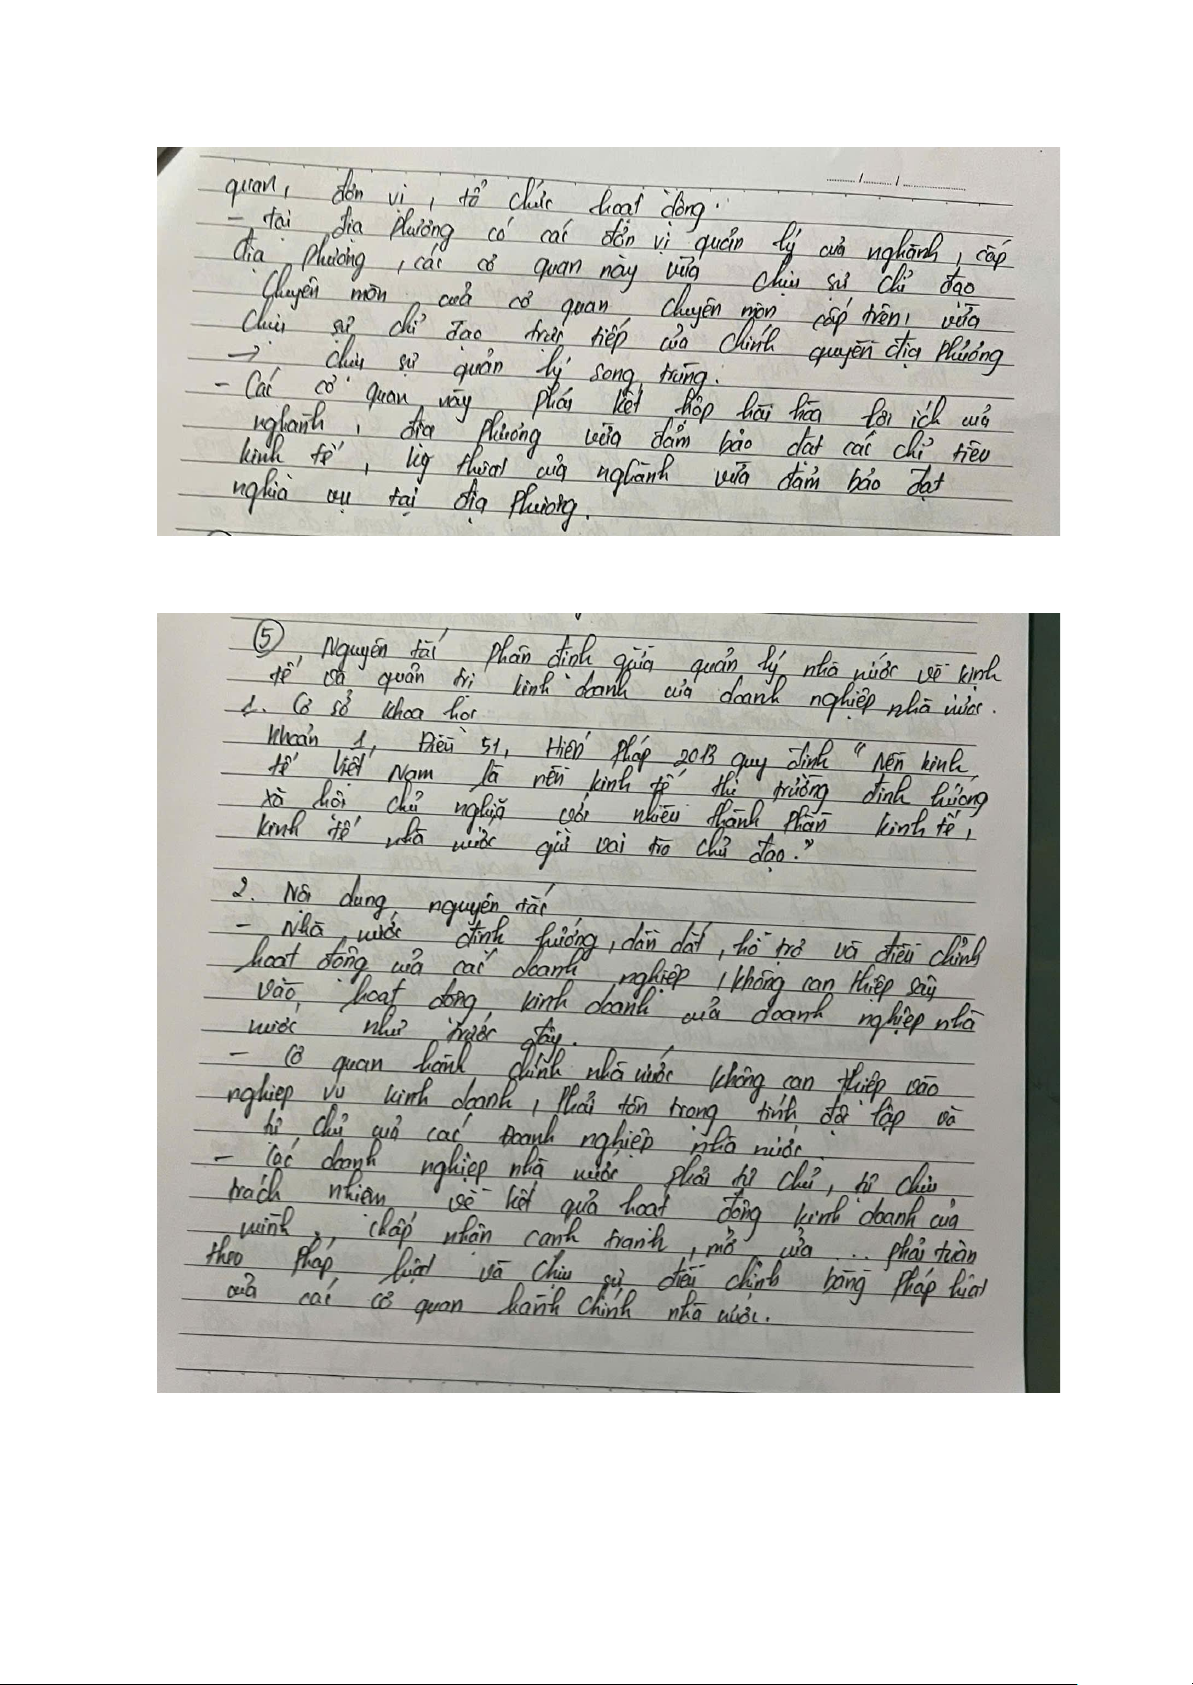 quan, đơn vị, tổ chức hoạt động.
- tại địa phương có các đơn vị quản lý của nghành, cấp
địa phương, các cơ quan này vừa chịu sự chỉ đạo
chuyên môn của cơ quan chuyên môn cấp trên, vừa
chịu sự chỉ đạo trực tiếp của chính quyền địa phương
→ chịu sự quản lý song trùng.
- Các cơ quan này phải kết hợp hài hòa lợi ích của
nghành, địa phương vừa đảm bảo đạt các chỉ tiêu
kinh tế, kỹ thuật của nghành vừa đảm bảo đạt
nghĩa vụ tại địa phương.
⑤ Nguyên tắc phân định giữa quản lý nhà nước về kinh
tế và quản trị kinh doanh của doanh nghiệp nhà nước.
1. Cơ sở khoa học
Khoản 1, Điều 51, Hiến pháp 2013 quy định “Nền kinh
tế Việt Nam là nền kinh tế thị trường định hướng
xã hội chủ nghĩa với nhiều thành phần kinh tế,
kinh tế nhà nước giữ vai trò chủ đạo.”
2. Nội dung nguyên tắc
- Nhà nước định hướng, dẫn dắt, hỗ trợ và điều chỉnh
hoạt động của các doanh nghiệp, không can thiệp sâu
vào hoạt động kinh doanh của doanh nghiệp nhà
nước như trước đây.
- Cơ quan hành chính nhà nước không can thiệp vào
nghiệp vụ kinh doanh, phải tôn trọng tính độ lập và
tự chủ của các Doanh nghiệp nhà nước.
- Các doanh nghiệp nhà nước phải tự chủ, tự chịu
trách nhiệm về kết quả hoạt động kinh doanh của
mình, chấp nhận cạnh tranh, mở cửa ... phải tuân
theo pháp luật và chịu sự điều chỉnh bằng pháp luật
của các cơ quan hành chính nhà nước.